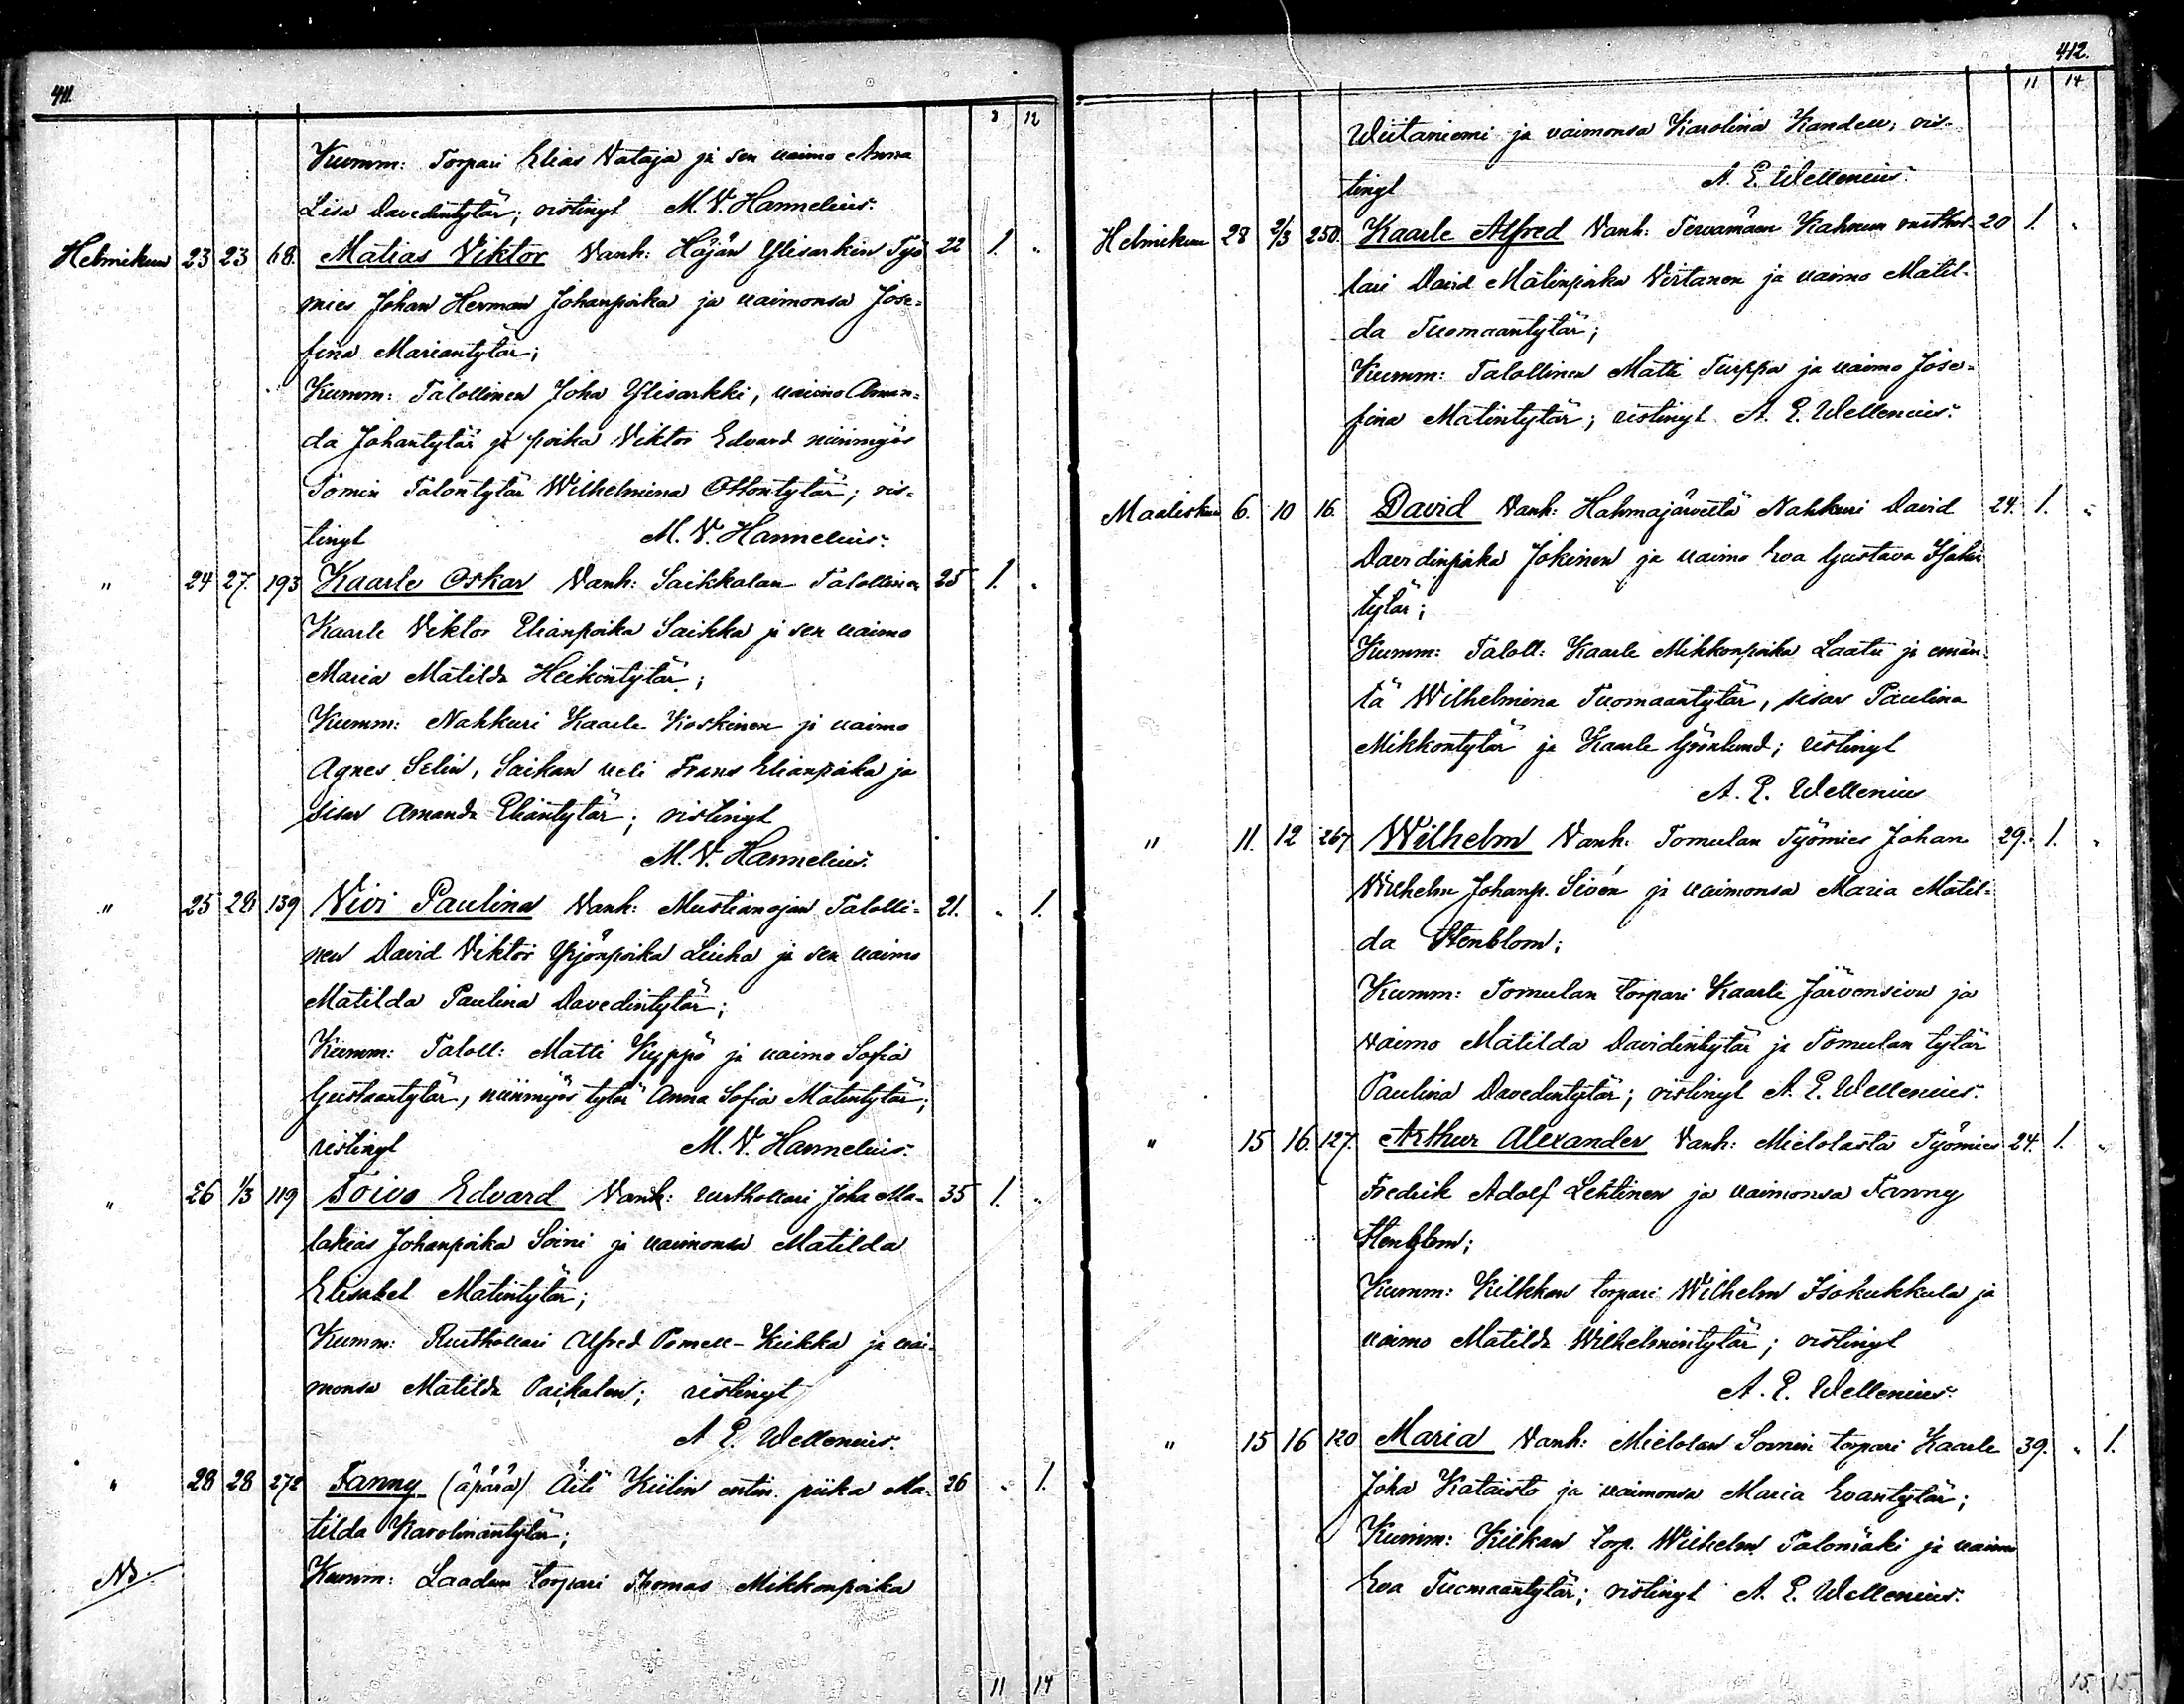 411.
8 12
Kumm: Torpari Elias Nataja ja sen vaimo Anna
Lisa Davedintytär; ristinyt M. V. Hannelius.
Helmikuu 23 23 68. Matias Viktor Vanh: Häjän Ylisarkin Työ 22 1. "
mies Johan Herman Johanpoika ja vaimonsa Jose-
fina Mariantytär;
Kumm: Talollinen Joha Ylisarkki, vaimo Aman-
da Johantytär ja poika Viktor Edvard niinmyös
Talontytär Wilhelmina Ottontytär; ris-
tinyt M. V. Hannelius.
" 24 27. 193 Kaarle Oskar Vanh: Saikkalan Talollinen 25 1. "
Kaarle Viktor Elianpoika Saikka ja sen vaimo
Maria Matilda Heikintytär;
Kumm: Nahkuri Kaarle Koskinen ja vaimo
Agnes Selin, Saikan veli Frans Elianpoika ja
sisar Amanda Eliäntytär; ristinyt
M. V. Hannelius.
" 25 28 139 Vivi Paulina Vanh: Mustianojan Talolli- 21. " 1.
nen David Viktor Yrjönpoika Liuha ja sen vaimo
Matilda Paulina Davedintytär;
Kumm: Taloll: Matti Kyppö ja vaimo Sofia
Gustaantytär, niinmyös tytär Anna Sofia Matintytär;
ristinyt M. V. Hannelius.
" 26 1/3 119 Toivo Edvard Vanh: rusthollari Joha Ma- 35 1. "
lakias Johanpoika Soini ja vaimonsa Matilda
Elisabet Matintytär;
Kumm: Rusthollari Alfred Pomell-Kiikka ja vai-
monsa Matilda Paikalen; ristinyt
A E. Wellenius.
" 28 28 272 Fanny (äpärä) Äiti Kiilin entin. piika Ma- 26 " 1.
tilda Karolinantytär;
NB. Kumm: Laadun torpari Thomas Mikkonpoika
11 14
412.
11 14
Wiitaniemi ja vaimonsa Karolina Kandell; ris-
tinyt A. E. Wellenius.
Helmikuu 28 2/3 250. Kaarle Alfred Vanh: Tervamäen Kahnun rusthol- 20 1. "
lari David Matinpoika Virtanen ja vaimo Matil-
da Tuomaantytär;
Kumm: Talollinen Matti Turppa ja vaimo Jose-
fina Matintytär; ristinyt A. E. Wellenius.
Maaliskuu 6. 10 16. David Vanh: Hahmajärveltä Nahkuri David 24. 1. "
Davidinpoika Jokinen ja vaimo Eva Gustava
tytär;
Kumm: Taloll: Kaarle Mikkonpoika Laatu ja emän-
tä Wilhelmina Tuomaantytär, sisar Paulina
Mikkontytär ja Kaarle Grönlund; ristinyt
A. E. Wellenius
" 11. 12 267 Wilhelm Vanh: Tomulan Työmies Johan 29. 1. "
Wilhelm Johanp. Sivén ja vaimonsa Maria Matil-
da Stenblom;
Kumm: Tomulan torpari Kaarle Järvensivu ja
vaimo Matilda Davidintytär ja Tomulan tytär
Paulina Davedintytär; ristinyt A. E. Wellenius.
" 15 16. 127. Arthur Alexander Vanh: Mielolasta Työmies 24. 1. "
Fredrik Adolf Lehtinen ja vaimonsa Fanny
Stenblom;
Kumm: Kilkkan torpari Wilhelm Isokukkula ja
vaimo Matilda Wilhelmintytär; ristinyt
A. E. Wellenius.
" 15 16 120 Maria Vanh: Mielolan Sonnin torpari Kaarle 39. " 1.
Joha Kataisto ja vaimonsa Maria Evantytär;
Kumm: Kilkan torp. Wilhelm Palomäki ja vaimo
Eva Tuomaantytär; ristinyt A. E. Wellenius.
15 15